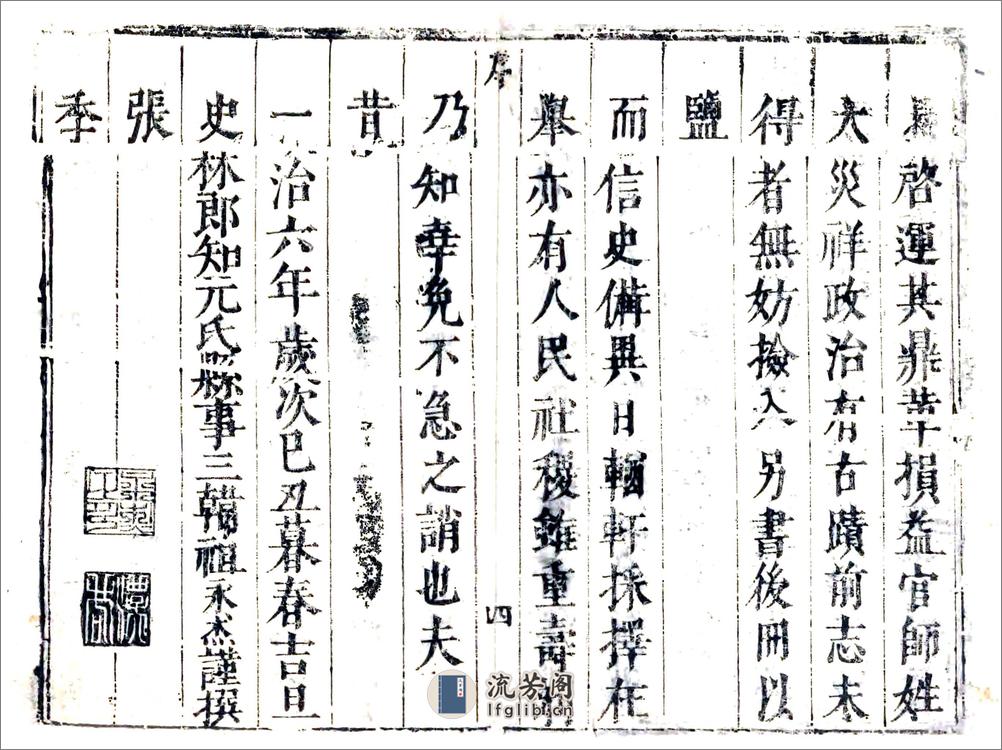 啓運其鼎革損益官師姓
大災祥政治有古蹟前志未
得者無妨撿入另書後冊以
鹽
而信史備異日輶軒採擇在
舉亦有人民社稷雖重壽
序
四
乃知幸免不急之誚也夫
昔
一治六年歲次己丑暮春吉旦
史林郎知元氏縣事三韓祖永杰謹撰
張
季
流芳阁
lfglib.cn